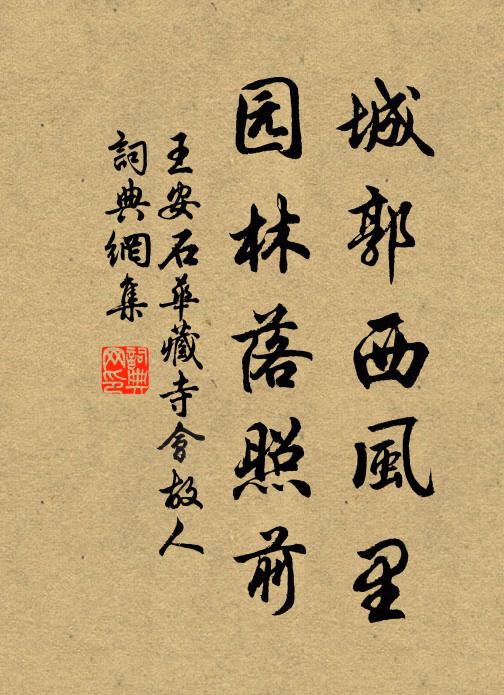 城郭西風里
园林落照前
王安石華藏寺會故人
詞典網集
詞典网印